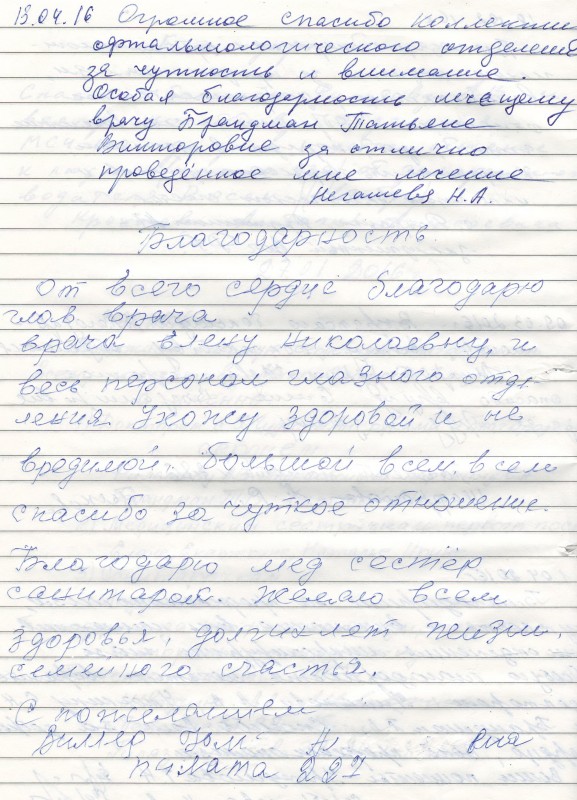 13.04.16 Огромное спасибо коллекти
офтальмологического отделение
за чуткость и внимание.
Особая благодарность лечащему
врачу Брайдман Татьяне
Викторовне за отлично
проведённое мне лечение
Негашева Н.А.
Благодарность
От всего сердце благодарю
глав врача
врача Елену Николаевну, и
весь персонал глазного отде
ления. Ухожу здоровой и не
вредимой. большой всем, всем
спасибо за чуткое отношение.
Благодарю мед сестёр,
санитарок. Желаю всем
здоровья, долгих лет жизни,
семейного счастья.
С пожеланием
палата 227